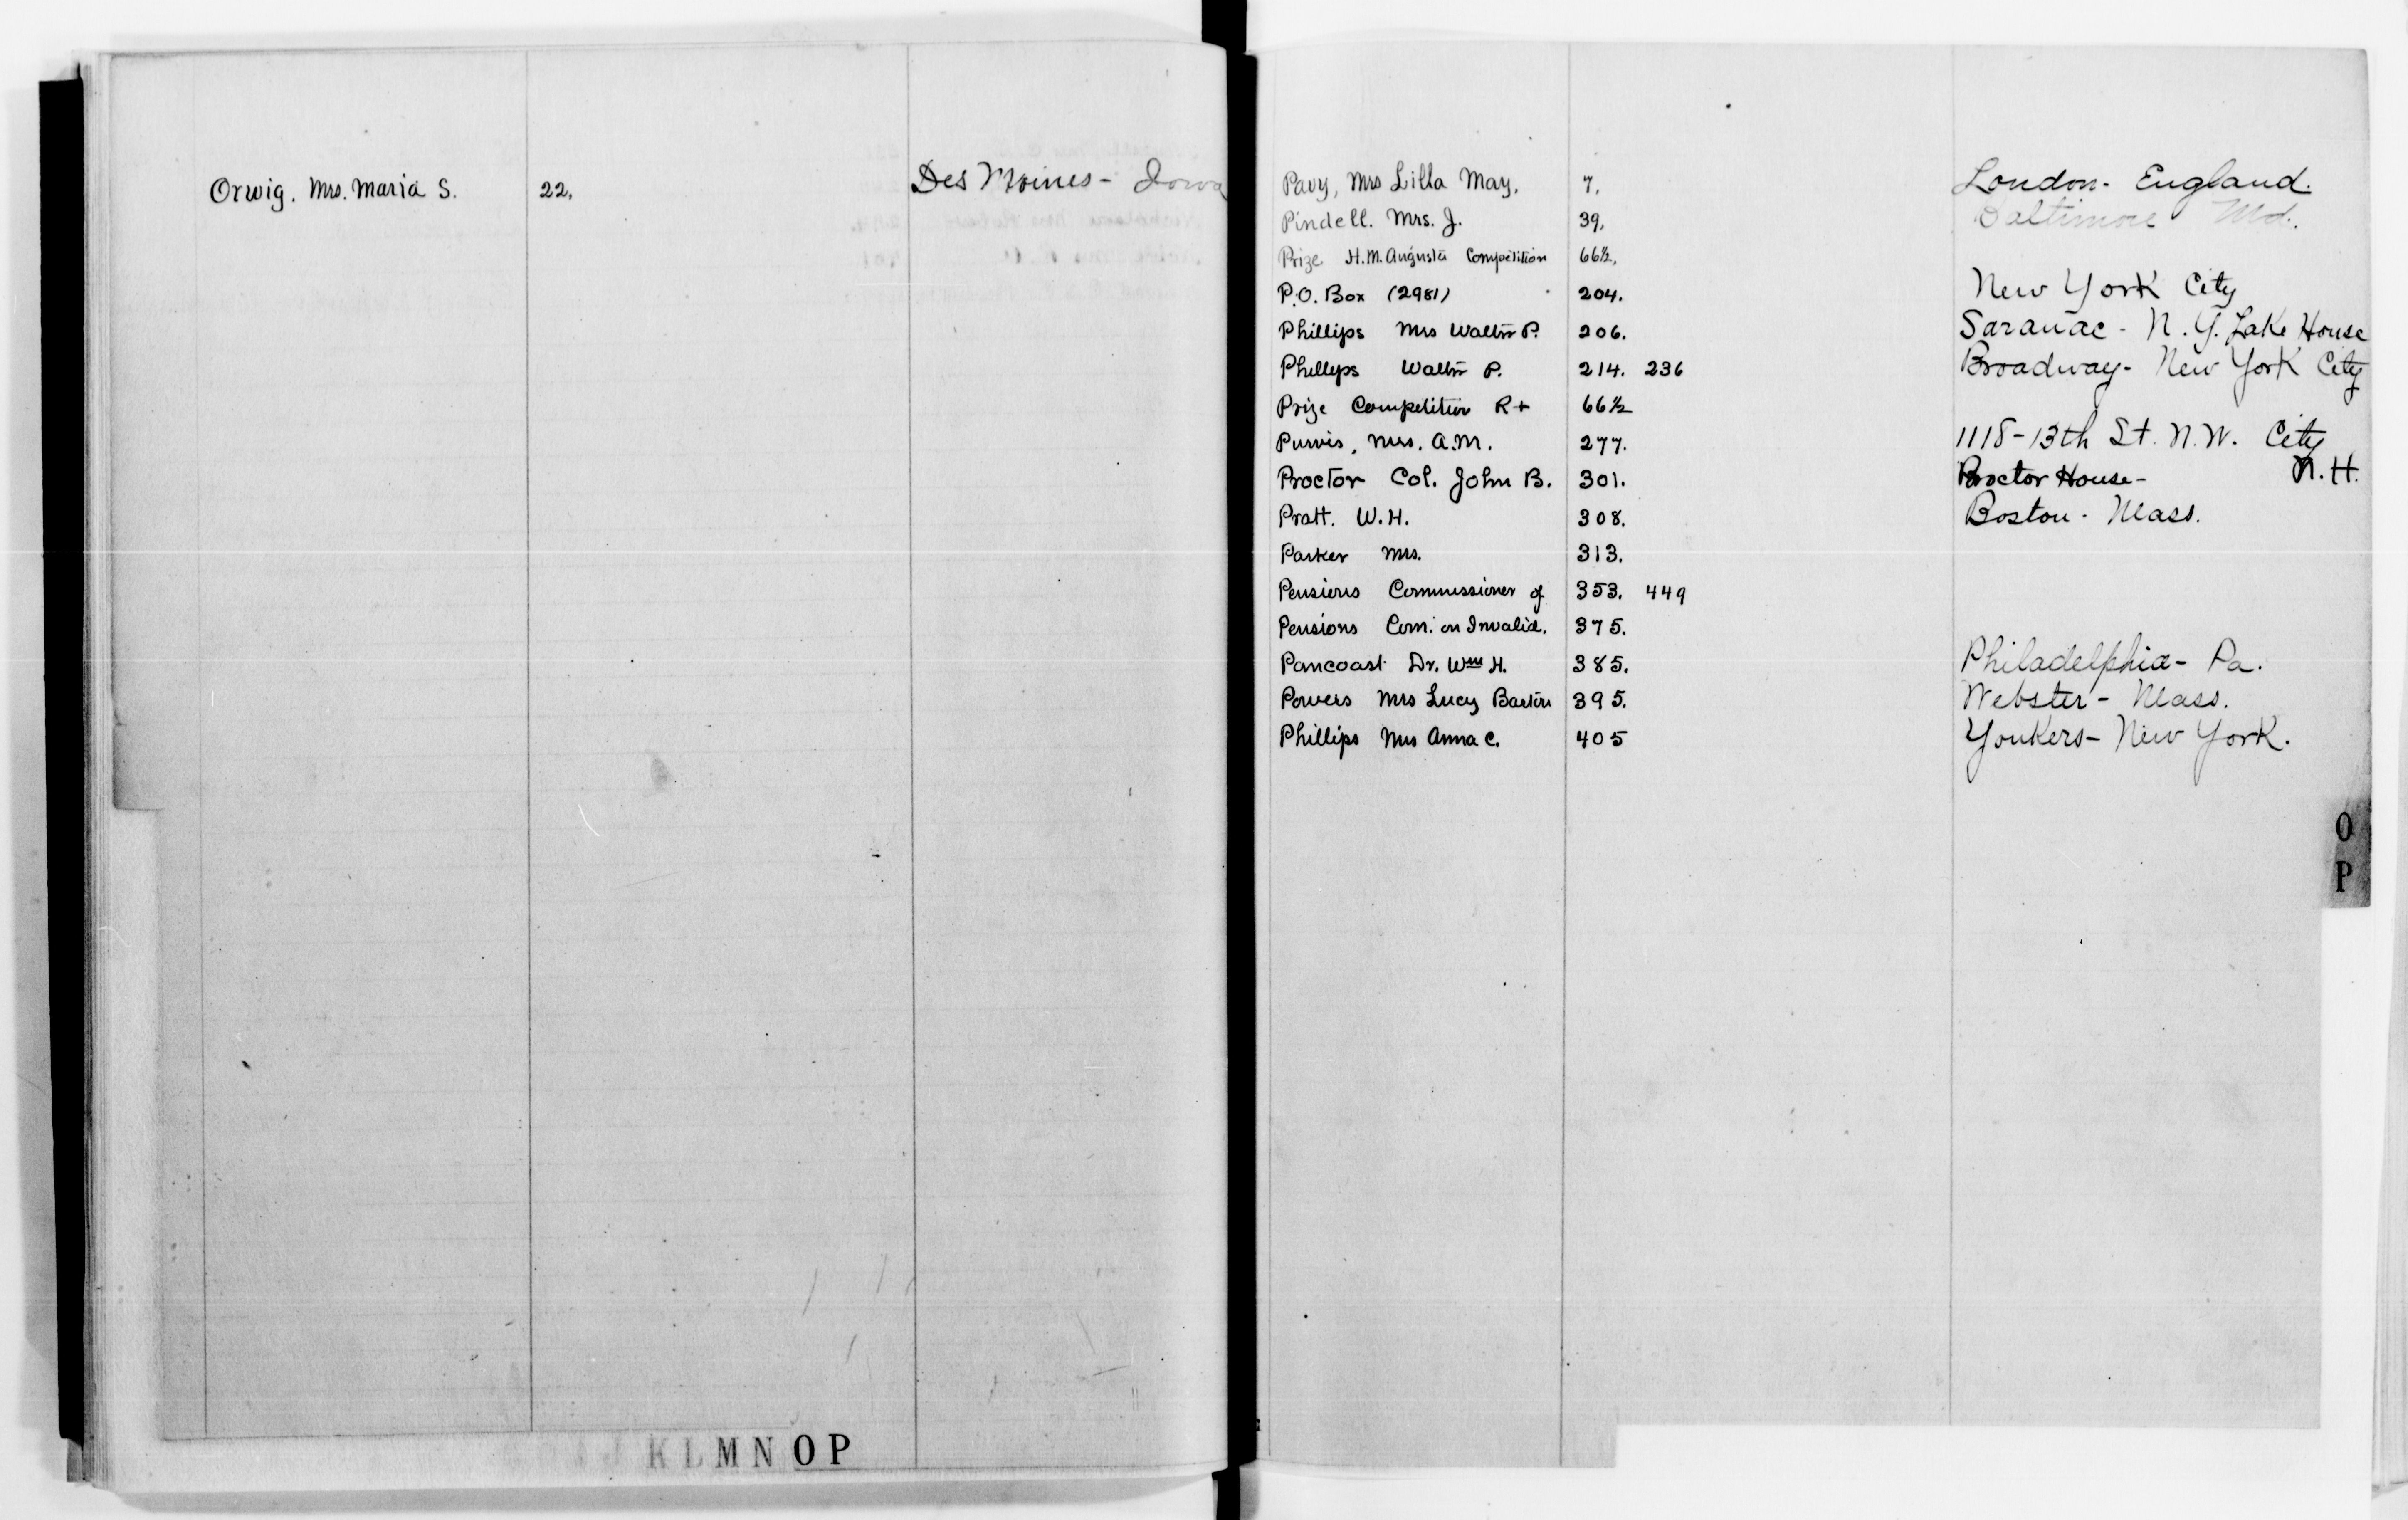 Orwig. Mrs. Maria S. 22. Des Moines - Iowa
J K L M N O P
Pavy, Mrs Lilla May. 7. London - England.
Pindell. Mrs. J. 39. Baltimore Md.
Prize H.M. Augusta Competition 66½.
P.O. Box (2981) 204. New York City
Phillips Mrs Walter P. 206. Saranac - N.Y. Lake House
Phillips Walter P. 214. 236 Broadway - New York City
Prize Competition R+ 66½
Purvis, Mrs. A.M. 277. 1118-13th St. N.W. City
Proctor Col. John B. 301. Proctor House - N.H.
Pratt. W.H. 308. Boston - Mass.
Parker Mrs. 313.
Pensions Commissioner of 353. 449
Pensions Com. on Invalid. 375.
Pancoast Dr. Wm H. 385. Philadelphia - Pa.
Powers Mrs Lucy Barton 395. Webster - Mass.
Phillips Mrs Anna C. 405 Yonkers - New York.
O
P